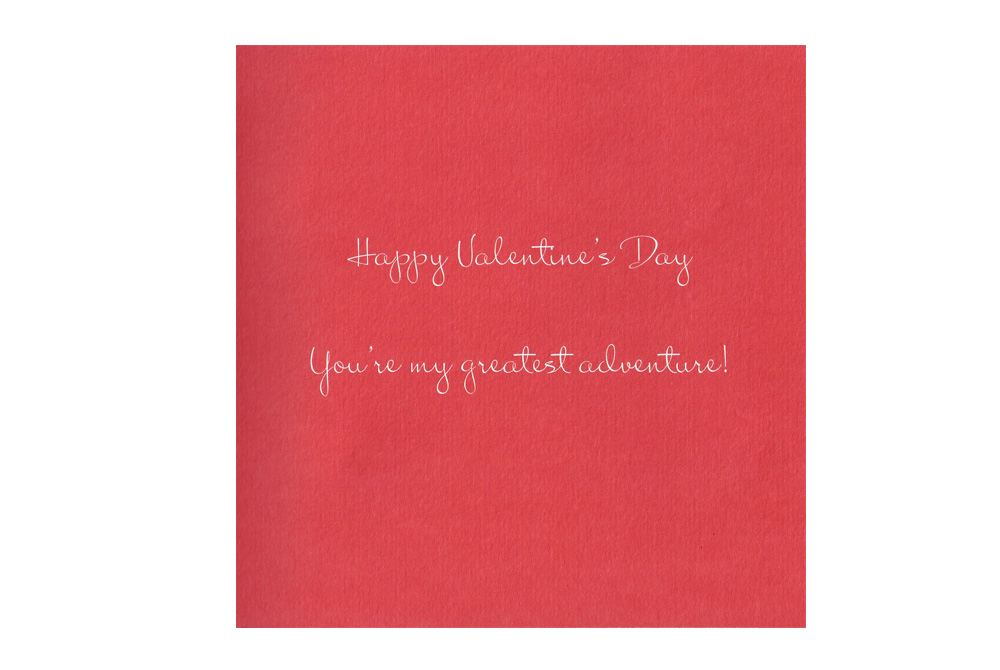 Happy Valentine's Day
You're my greatest adventure!